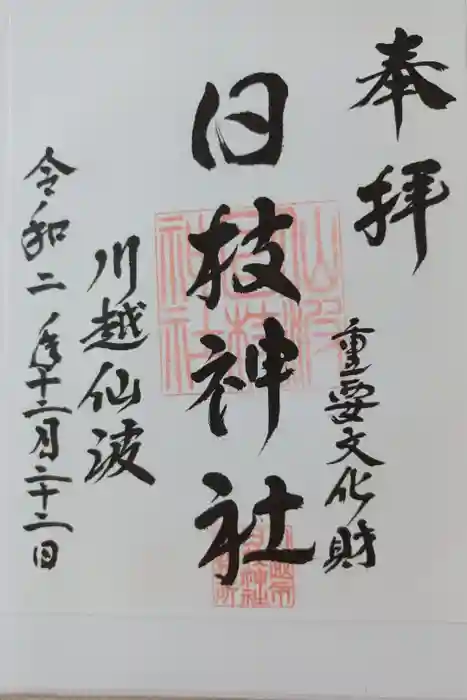 奉拝
重要文化財
日枝神社
川越仙波
令和二年十二月二十二日